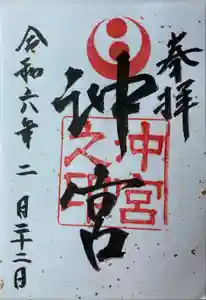 奉拝
沖宮
沖宮
之印
令和六年二月二十二日